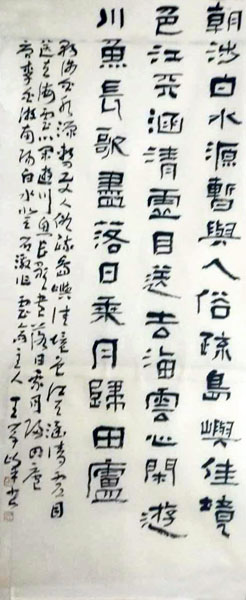 朝涉白水源暫與人俗疏島嶼佳境
色江天涵清虛目送去海雲心閑游
川魚長歌盡落日乘月歸田廬
朝涉白水源暫與人俗疏島嶼佳境色江天涵清虛目
送去海雲心閑遊川魚長歌盡落日乘月歸田廬
李白遊南陽白水登石激作主人王書